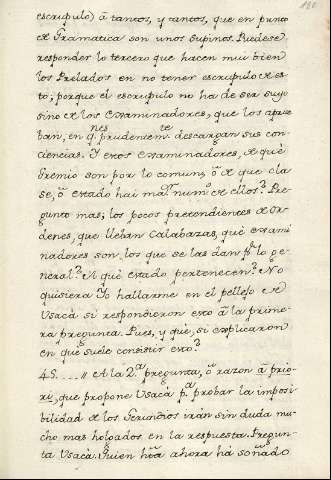 escrupulo) â tantos, y tantos, que en punto
de Gramatica son unos supinos. Puedese
responder lo tercero que hacen mui bien
los Prelados en no tener escrupulo de es
to; porque el escrupulo no ha de ser suyo
sino de los Examinadores, que los aprue
ban, en q.nes prudentem.te descargan sus con
ciencias. Y esos Examinadores, de què
Gremio son por lo comun, ô de que cla
se, ô estado hai ma.r num.o de ellos? Pre
gunto mas; los pocos pretendientes de Or
denes, que lleban Calabazas, què exami
nadores son los que se las dan p.r lo ge
neral? A què estado pertenecen? No
quisiera Yo hallarme en el pellejo de
Usacà si respondieron esto à la prime
ra pregunta. Pues, y què, si explicaron
en que suele consistir esto?
45. .... // A la 2.a pregunta, ô razon â prio
ri, que propone Usacà p.a probar la imposi
bilidad de los Gerundios iràn sin duda mu
cho mas holgados en la respuesta. Pregun
ta Usacà. Quien h.ta ahora hà soñado